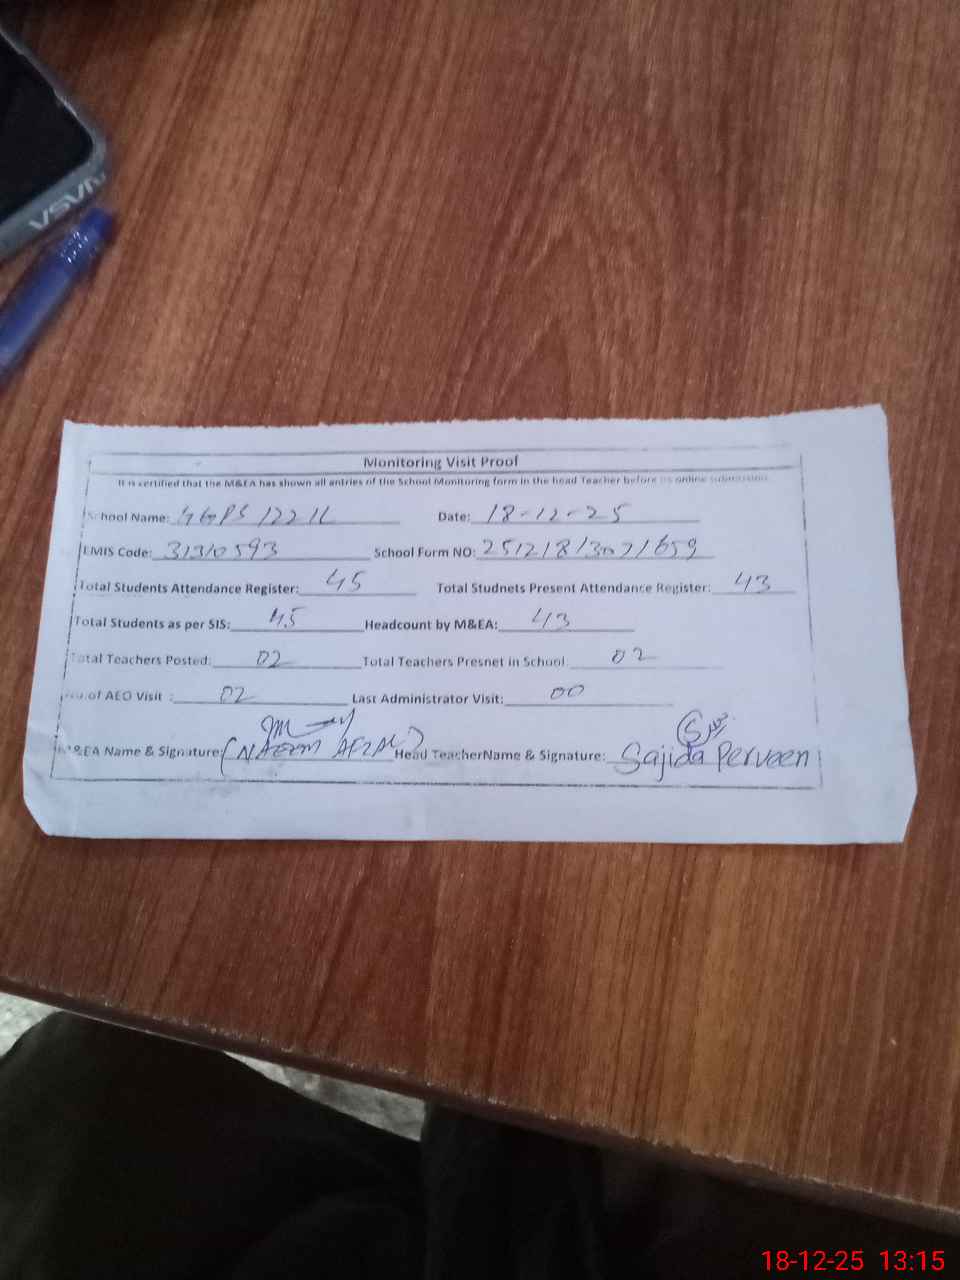 VSVN
Monitoring Visit Proof
It is certified that the M&EA has shown all entries of the School Monitoring form in the head Teacher before its online submission.
School Name: GGPS 122 1L Date: 18-12-25
EMIS Code: 31310593 School Form NO:
Total Students Attendance Register: 45 Total Studnets Present Attendance Register: 43
Total Students as per SIS: 45 Headcount by M&EA: 43
Total Teachers Posted: 02 Total Teachers Presnet in School: 02
No.of AEO Visit : 02 Last Administrator Visit: 00
M&EA Name & Signature: (NAEEM AFZAL) Head TeacherName & Signature: Sajida Perveen
18-12-25 13:15